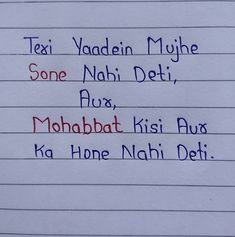 Teri Yaadein Mujhe
Sone Nahi Deti,
Aur,
Mohabbat Kisi Aur
Ka Hone Nahi Deti.